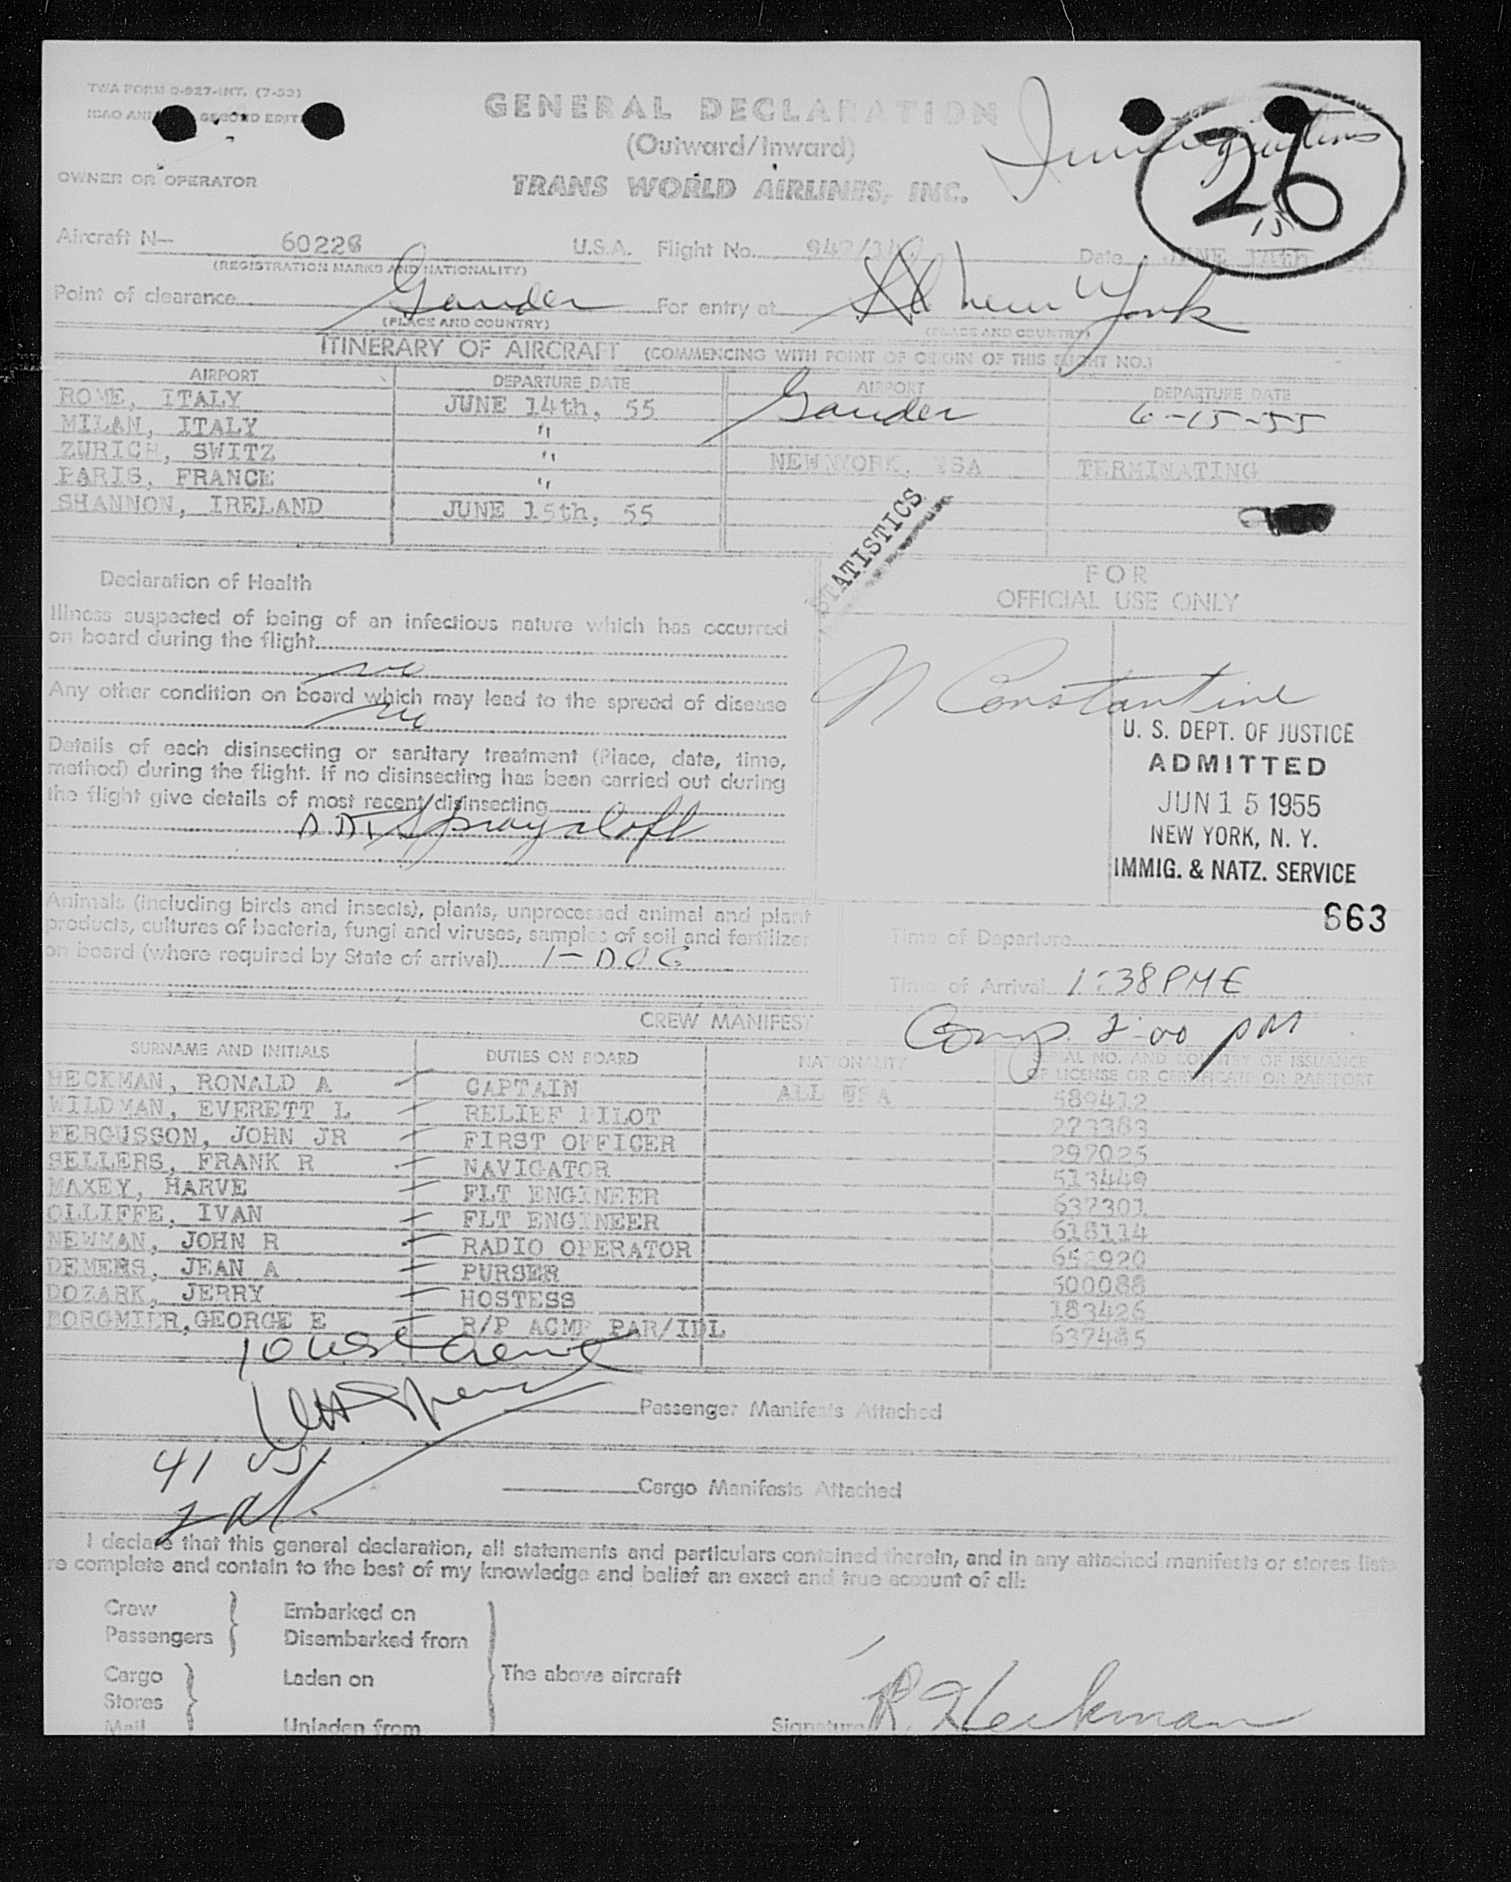 TWA FORM O-927-INT. (7-53)
ICAO SECOND
GENERAL DECLARATION
(Outward/Inward)
OWNER OR OPERATOR
TRANS WORLD AIRLINES, INC.
26
15
Aircraft N— 60228 U.S.A. Flight No. Date JUNE 14th
(REGISTRATION MARKS AND NATIONALITY)
Point of clearance Gander For entry at New York
(PLACE AND COUNTRY) (PLACE AND COUNTRY)
ITINERARY OF AIRCRAFT (COMMENCING WITH POINT OF ORIGIN OF THIS FLIGHT NO.)
AIRPORT DEPARTURE DATE AIRPORT DEPARTURE DATE
ROME, ITALY JUNE 14th, 55 Gander 6-15-55
MILAN, ITALY "
ZURICH, SWITZ " NEW YORK, USA TERMINATING
PARIS, FRANCE "
SHANNON, IRELAND JUNE 15th, 55
STATISTICS
Declaration of Health
FOR
OFFICIAL USE ONLY
Illness suspected of being of an infectious nature which has occurred
on board during the flight
no
Any other condition on board which may lead to the spread of disease
no
N Constantine
Details of each disinsecting or sanitary treatment (Place, date, time,
method) during the flight. If no disinsecting has been carried out during
the flight give details of most recent disinsecting
DDT Spray aloft
U. S. DEPT. OF JUSTICE
ADMITTED
JUN 15 1955
NEW YORK, N. Y.
IMMIG. & NATZ. SERVICE
663
Animals (including birds and insects), plants, unprocessed animal and plant
products, cultures of bacteria, fungi and viruses, samples of soil and fertilizer
on board (where required by State of arrival) 1 - DOG
Time of Departure
Time of Arrival 1:38 PM E
Comp. 2:00 PM
CREW MANIFEST
SURNAME AND INITIALS DUTIES ON BOARD NATIONALITY SERIAL NO. AND COUNTRY OF ISSUANCE
OF LICENSE OR CERTIFICATE OR PASSPORT
HECKMAN, RONALD A CAPTAIN ALL USA 589412
WILDMAN, EVERETT L RELIEF PILOT 273383
FERGUSSON, JOHN JR FIRST OFFICER 297025
SELLERS, FRANK R NAVIGATOR 513449
MAXEY, HARVE FLT ENGINEER 637301
OLLIFFE, IVAN FLT ENGINEER 618114
NEWMAN, JOHN R RADIO OPERATOR
DEMERS, JEAN A PURSER 500088
DOZARK, JERRY HOSTESS 183426
BORGMIER, GEORGE E R/P ACMP PAR/IDL 637485
10 USC Crew
Passenger Manifests Attached
41 USC
Cargo Manifests Attached
I declare that this general declaration, all statements and particulars contained therein, and in any attached manifests or stores lists
re complete and contain to the best of my knowledge and belief an exact and true account of all:
Crew Embarked on
Passengers Disembarked from
Cargo Laden on The above aircraft
Stores
Mail Unladen from Signature R. Heckman